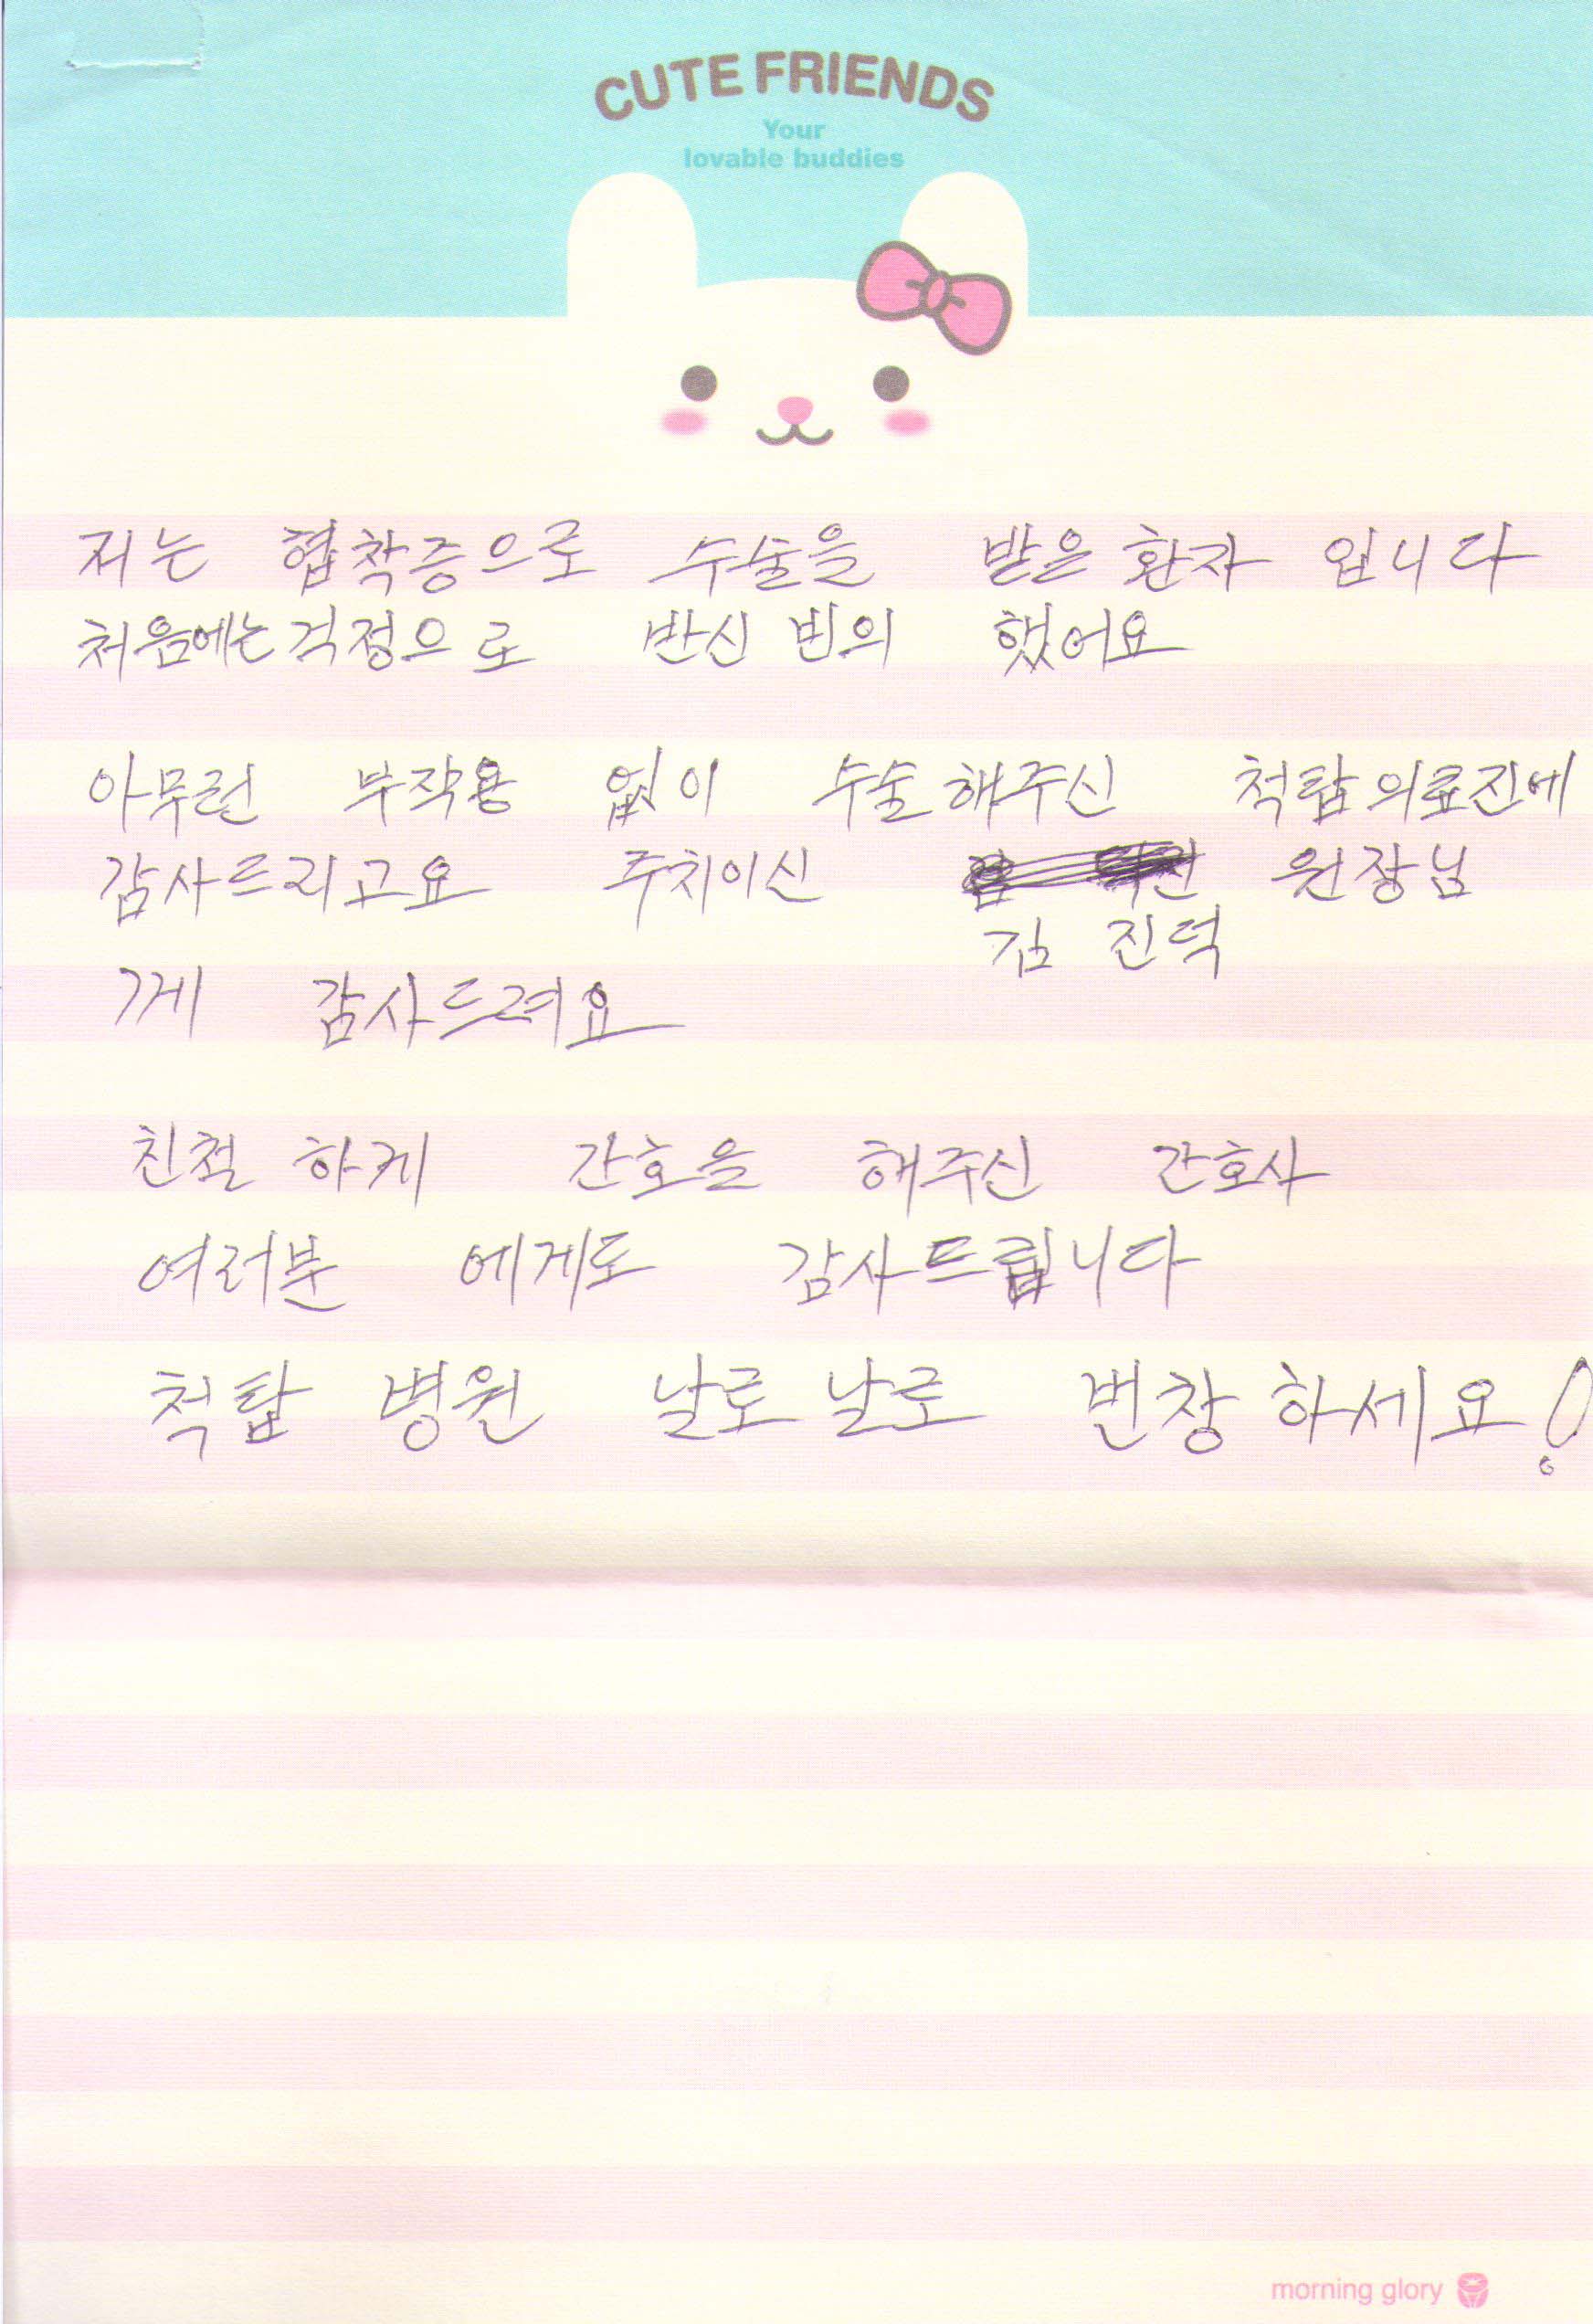 CUTE FRIENDS
Your
lovable buddies
저는 협착증으로 수술을 받은 환자 입니다
처음에는 걱정으로 반신 빈의 했어요
아무런 부작용 없이 수술해주신 척탑의료진에
감사드리고요 주치이신 원장님
김 진덕
께 감사드려요
친철 하게 간호을 해주신 간호사
여러분 에게도 감사드립니다
척탑 병원 날로 날로 번창 하세요!
morning glory